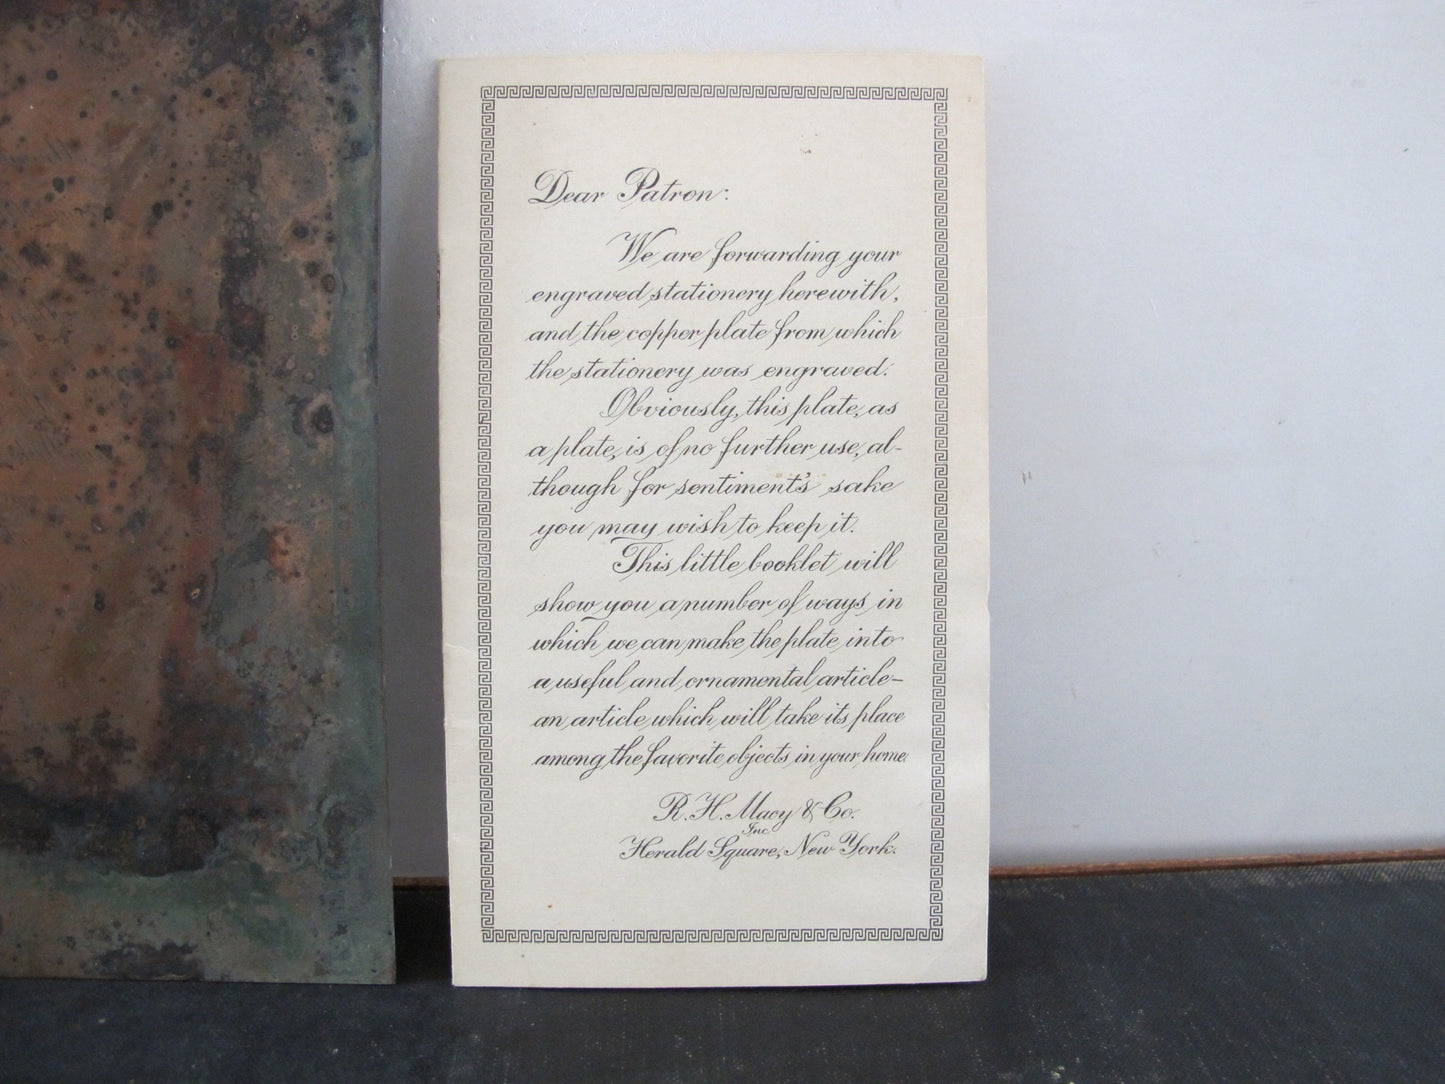 Dear Patron:
We are forwarding your
engraved stationery herewith,
and the copper plate from which
the stationery was engraved.
Obviously, this plate, as
a plate, is of no further use, al-
though for sentiment's sake
you may wish to keep it.
This little booklet will
show you a number of ways in
which we can make the plate into
a useful and ornamental article-
an article which will take its place
among the favorite objects in your home.
R. H. Macy & Co.
Inc.
Herald Square, New York.